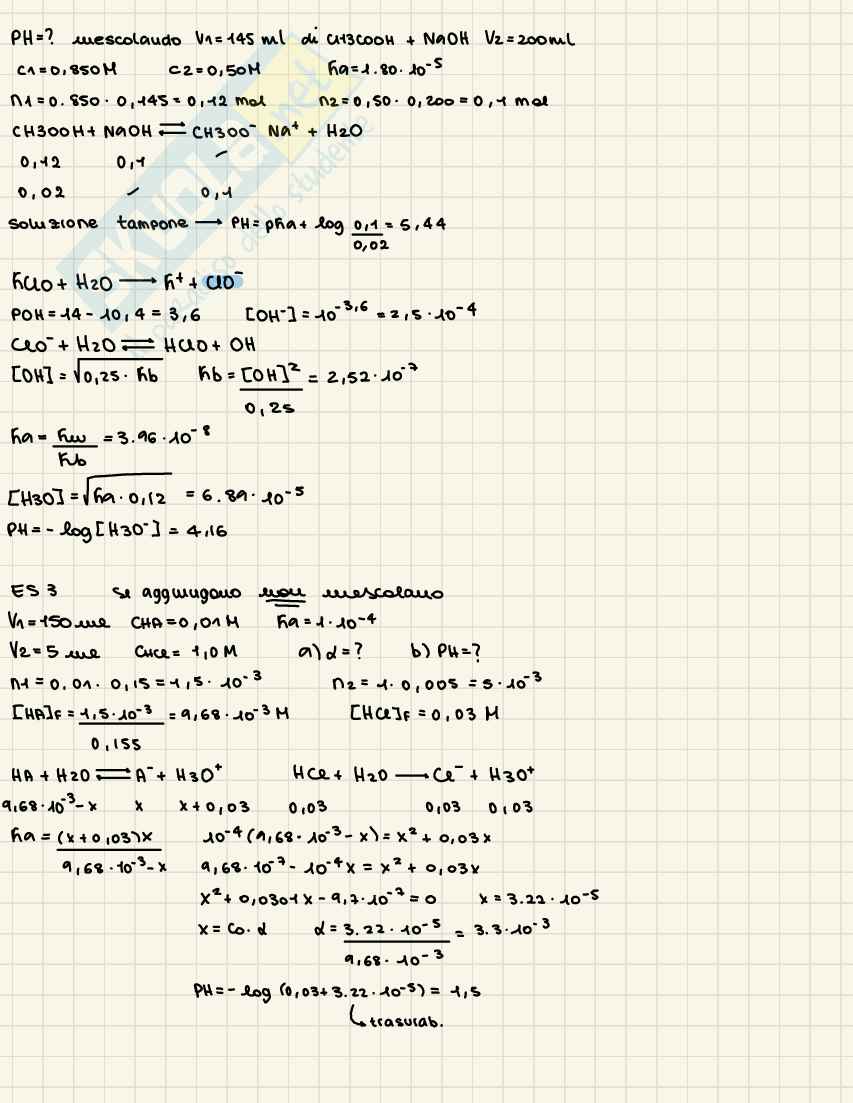 PH=? mescolando V1=145 ml di CH3COOH + NaOH V2=200ml
C1=0,850M C2=0,50M Ka=1.80·10⁻⁵
n1=0.850·0,145=0,12 mol n2=0,50·0,200=0,1 mol
CH3OOH+ NaOH ⇌ CH3OO⁻ Na⁺ + H2O
0,12 0,1 –
0,02 – 0,1
soluzione tampone → PH=pKa+ log 0,1/0,02 = 5,44
HClO + H2O → H⁺ + ClO⁻
POH=14-10,4=3,6 [OH⁻]=10⁻³,⁶=2,5·10⁻⁴
ClO⁻+ H2O ⇌ HClO+ OH
[OH]=√0,25·Kb Kb=[OH]²/0,25=2,52·10⁻⁷
Ka=Kw/Kb=3.96·10⁻⁸
[H3O]=√Ka·0,12 =6.89·10⁻⁵
PH=-log[H3O⁻]=4,16
ES 3 se aggiungono non mescolano
V1=150 ml CHA=0,01M Ka=1·10⁻⁴
V2=5 ml CHCl=1,0M a) α=? b) PH=?
n1=0.01·0,15=1,5·10⁻³ n2=1·0,005=5·10⁻³
[HA]F=1,5·10⁻³/0,155=9,68·10⁻³M [HCl]F=0,03 M
HA+H2O ⇌ A⁻+ H3O⁺ HCl+ H2O → Cl⁻ + H3O⁺
9,68·10⁻³-x x x+0,03 0,03 0,03 0,03
Ka=(x+0,03)x/9,68·10⁻³-x 10⁻⁴(9,68·10⁻³-x)=x²+0,03x
9,68·10⁻⁷-10⁻⁴x=x²+0,03x
x²+0,0301x-9,7·10⁻⁷=0 x=3.22·10⁻⁵
x=C0·α α=3.22·10⁻⁵/9,68·10⁻³=3.3·10⁻³
PH=-log(0,03+3.22·10⁻⁵)=1,5
↳trascurab.
SKUOLA.net
il paradiso dello studente